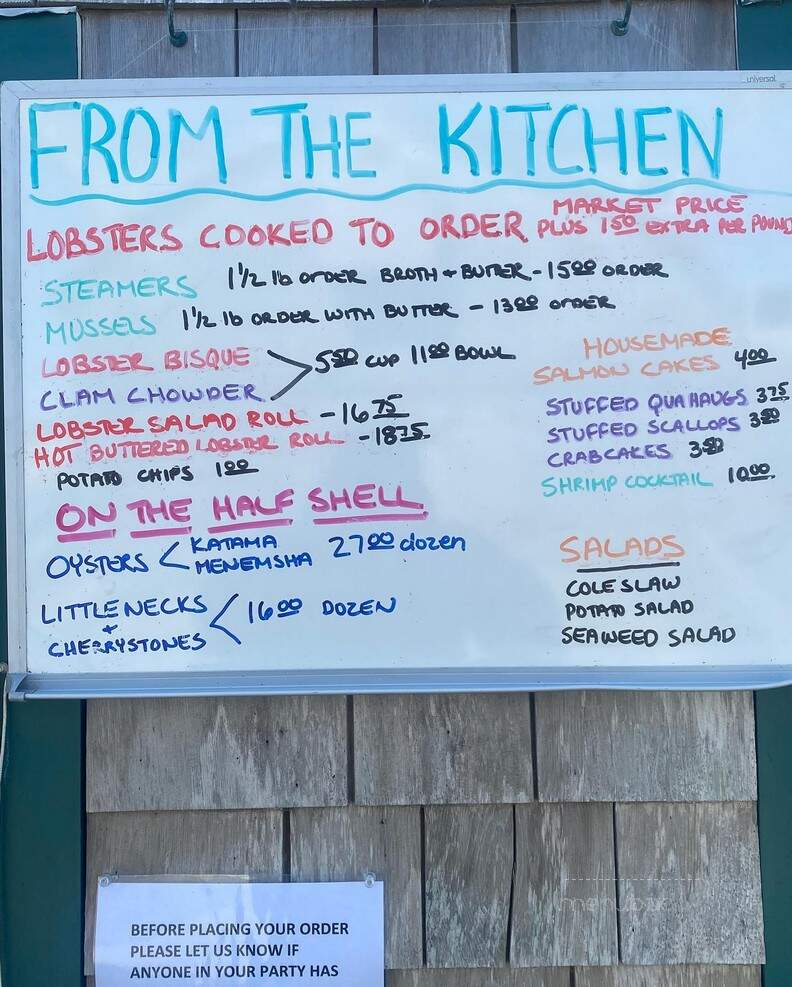 universal
FROM THE KITCHEN
LOBSTERS COOKED TO ORDER MARKET PRICE
PLUS 1 50 EXTRA PER POUND
STEAMERS 1 1/2 lb order BROTH + BUTTER - 15 00 ORDER
MUSSELS 1 1/2 lb ORDER WITH BUTTER - 13 00 ORDER
LOBSTER BISQUE
CLAM CHOWDER
5 50 CUP 11 00 BOWL
LOBSTER SALAD ROLL - 16 75
HOT BUTTERED LOBSTER ROLL - 18 75
POTATO CHIPS 1 00
HOUSEMADE
SALMON CAKES 4 00
STUFFED QUAHAUGS 3 75
STUFFED SCALLOPS 3 50
CRABCAKES 3 50
SHRIMP COCKTAIL 10 00
ON THE HALF SHELL
OYSTERS < KATAMA
MENEMSHA 27 00 dozen
LITTLENECKS
+
CHERRYSTONES < 16 00 DOZEN
SALADS
COLE SLAW
POTATO SALAD
SEAWEED SALAD
BEFORE PLACING YOUR ORDER
PLEASE LET US KNOW IF
ANYONE IN YOUR PARTY HAS